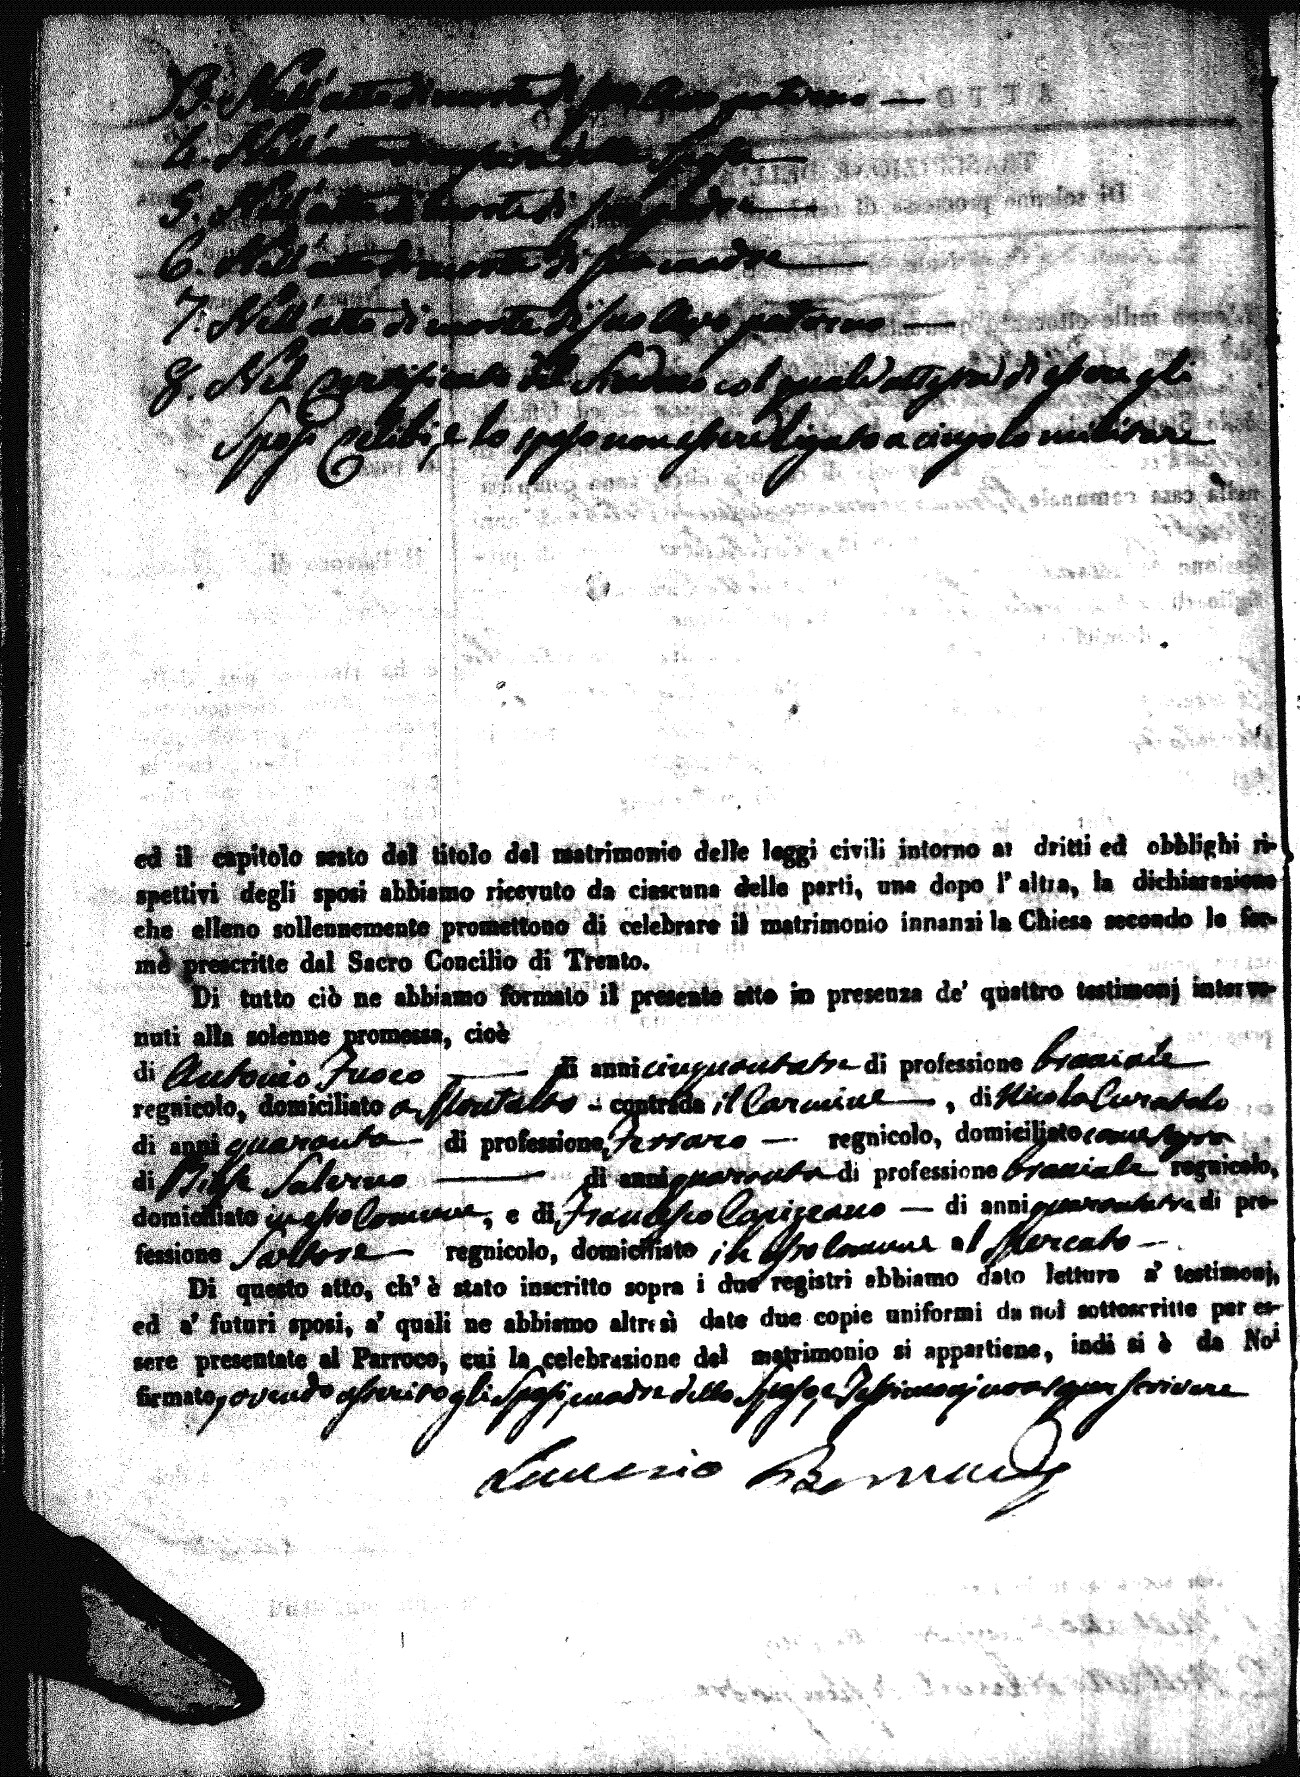 3. Nell'atto di morte di suo Avo paterno —
4. Nell'atto di nascita della Sposa —
5. Nell'atto di morte di suo padre —
6. Nell'atto di morte di sua madre —
7. Nell'atto di morte di suo Avo paterno —
8. Nel Certificato del Sindaco col quale attesta di essere gli
Sposi Celibi, e lo sposo non essere ligato a cingolo militare
ed il capitolo sesto del titolo del matrimonio delle leggi civili intorno ai dritti ed obblighi ri-
spettivi degli sposi abbiamo ricevuto da ciascuna delle parti, una dopo l'altra, la dichiarazione
che elleno sollennemente promettono di celebrare il matrimonio innanzi la Chiesa secondo le for-
me prescritte dal Sacro Concilio di Trento.
Di tutto ciò ne abbiamo formato il presente atto in presenza de' quattro testimonj interve-
nuti alla solenne promessa, cioè
di Antonio Fusco — di anni cinquantatre di professione bracciale —
regnicolo, domiciliato a Montalto - contrada il Carmine —, di Nicola Curatolo
di anni quaranta — di professione Ferraro — regnicolo, domiciliato come sopra
di Salerno — di anni quaranta di professione bracciale regnicolo,
domiciliato in esso Comune, e di Francesco — di anni quarantatre di pro-
fessione Sartore — regnicolo, domiciliato in esso Comune al Mercato —.
Di questo atto, ch'è stato inscritto sopra i due registri abbiamo dato lettura a' testimonj,
ed a' futuri sposi, a' quali ne abbiamo altresì date due copie uniformi da noi sottoscritte per es-
sere presentate al Parroco, cui la celebrazione del matrimonio si appartiene, indi si è da Noi
firmato, avendo asserito gli Sposi, madre dello Sposo, e Testimonj non saper scrivere